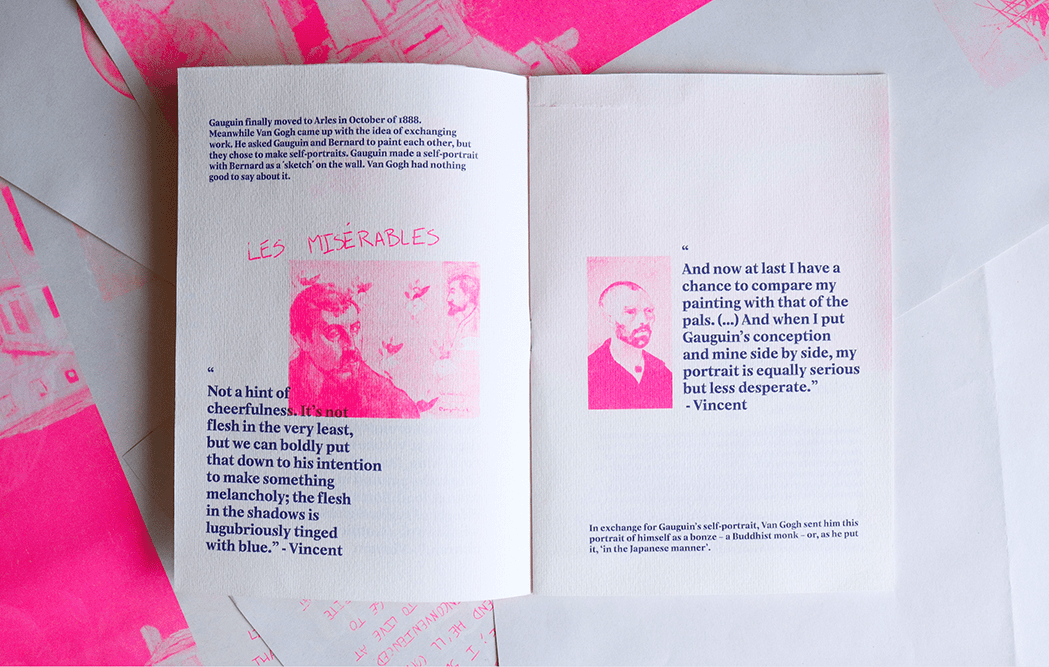 Gauguin finally moved to Arles in October of 1888.
Meanwhile Van Gogh came up with the idea of exchanging
work. He asked Gauguin and Bernard to paint each other, but
they chose to make self-portraits. Gauguin made a self-portrait
with Bernard as a ‘sketch’ on the wall. Van Gogh had nothing
good to say about it.
LES MISÉRABLES
“
Not a hint of
cheerfulness. It’s not
flesh in the very least,
but we can boldly put
that down to his intention
to make something
melancholy; the flesh
in the shadows is
lugubriously tinged
with blue.” - Vincent
“
And now at last I have a
chance to compare my
painting with that of the
pals. (...) And when I put
Gauguin’s conception
and mine side by side, my
portrait is equally serious
but less desperate.”
- Vincent
In exchange for Gauguin’s self-portrait, Van Gogh sent him this
portrait of himself as a bonze – a Buddhist monk – or, as he put
it, ‘in the Japanese manner’.
AND HE'LL
INCONVENIENCED
TO LIVE AT